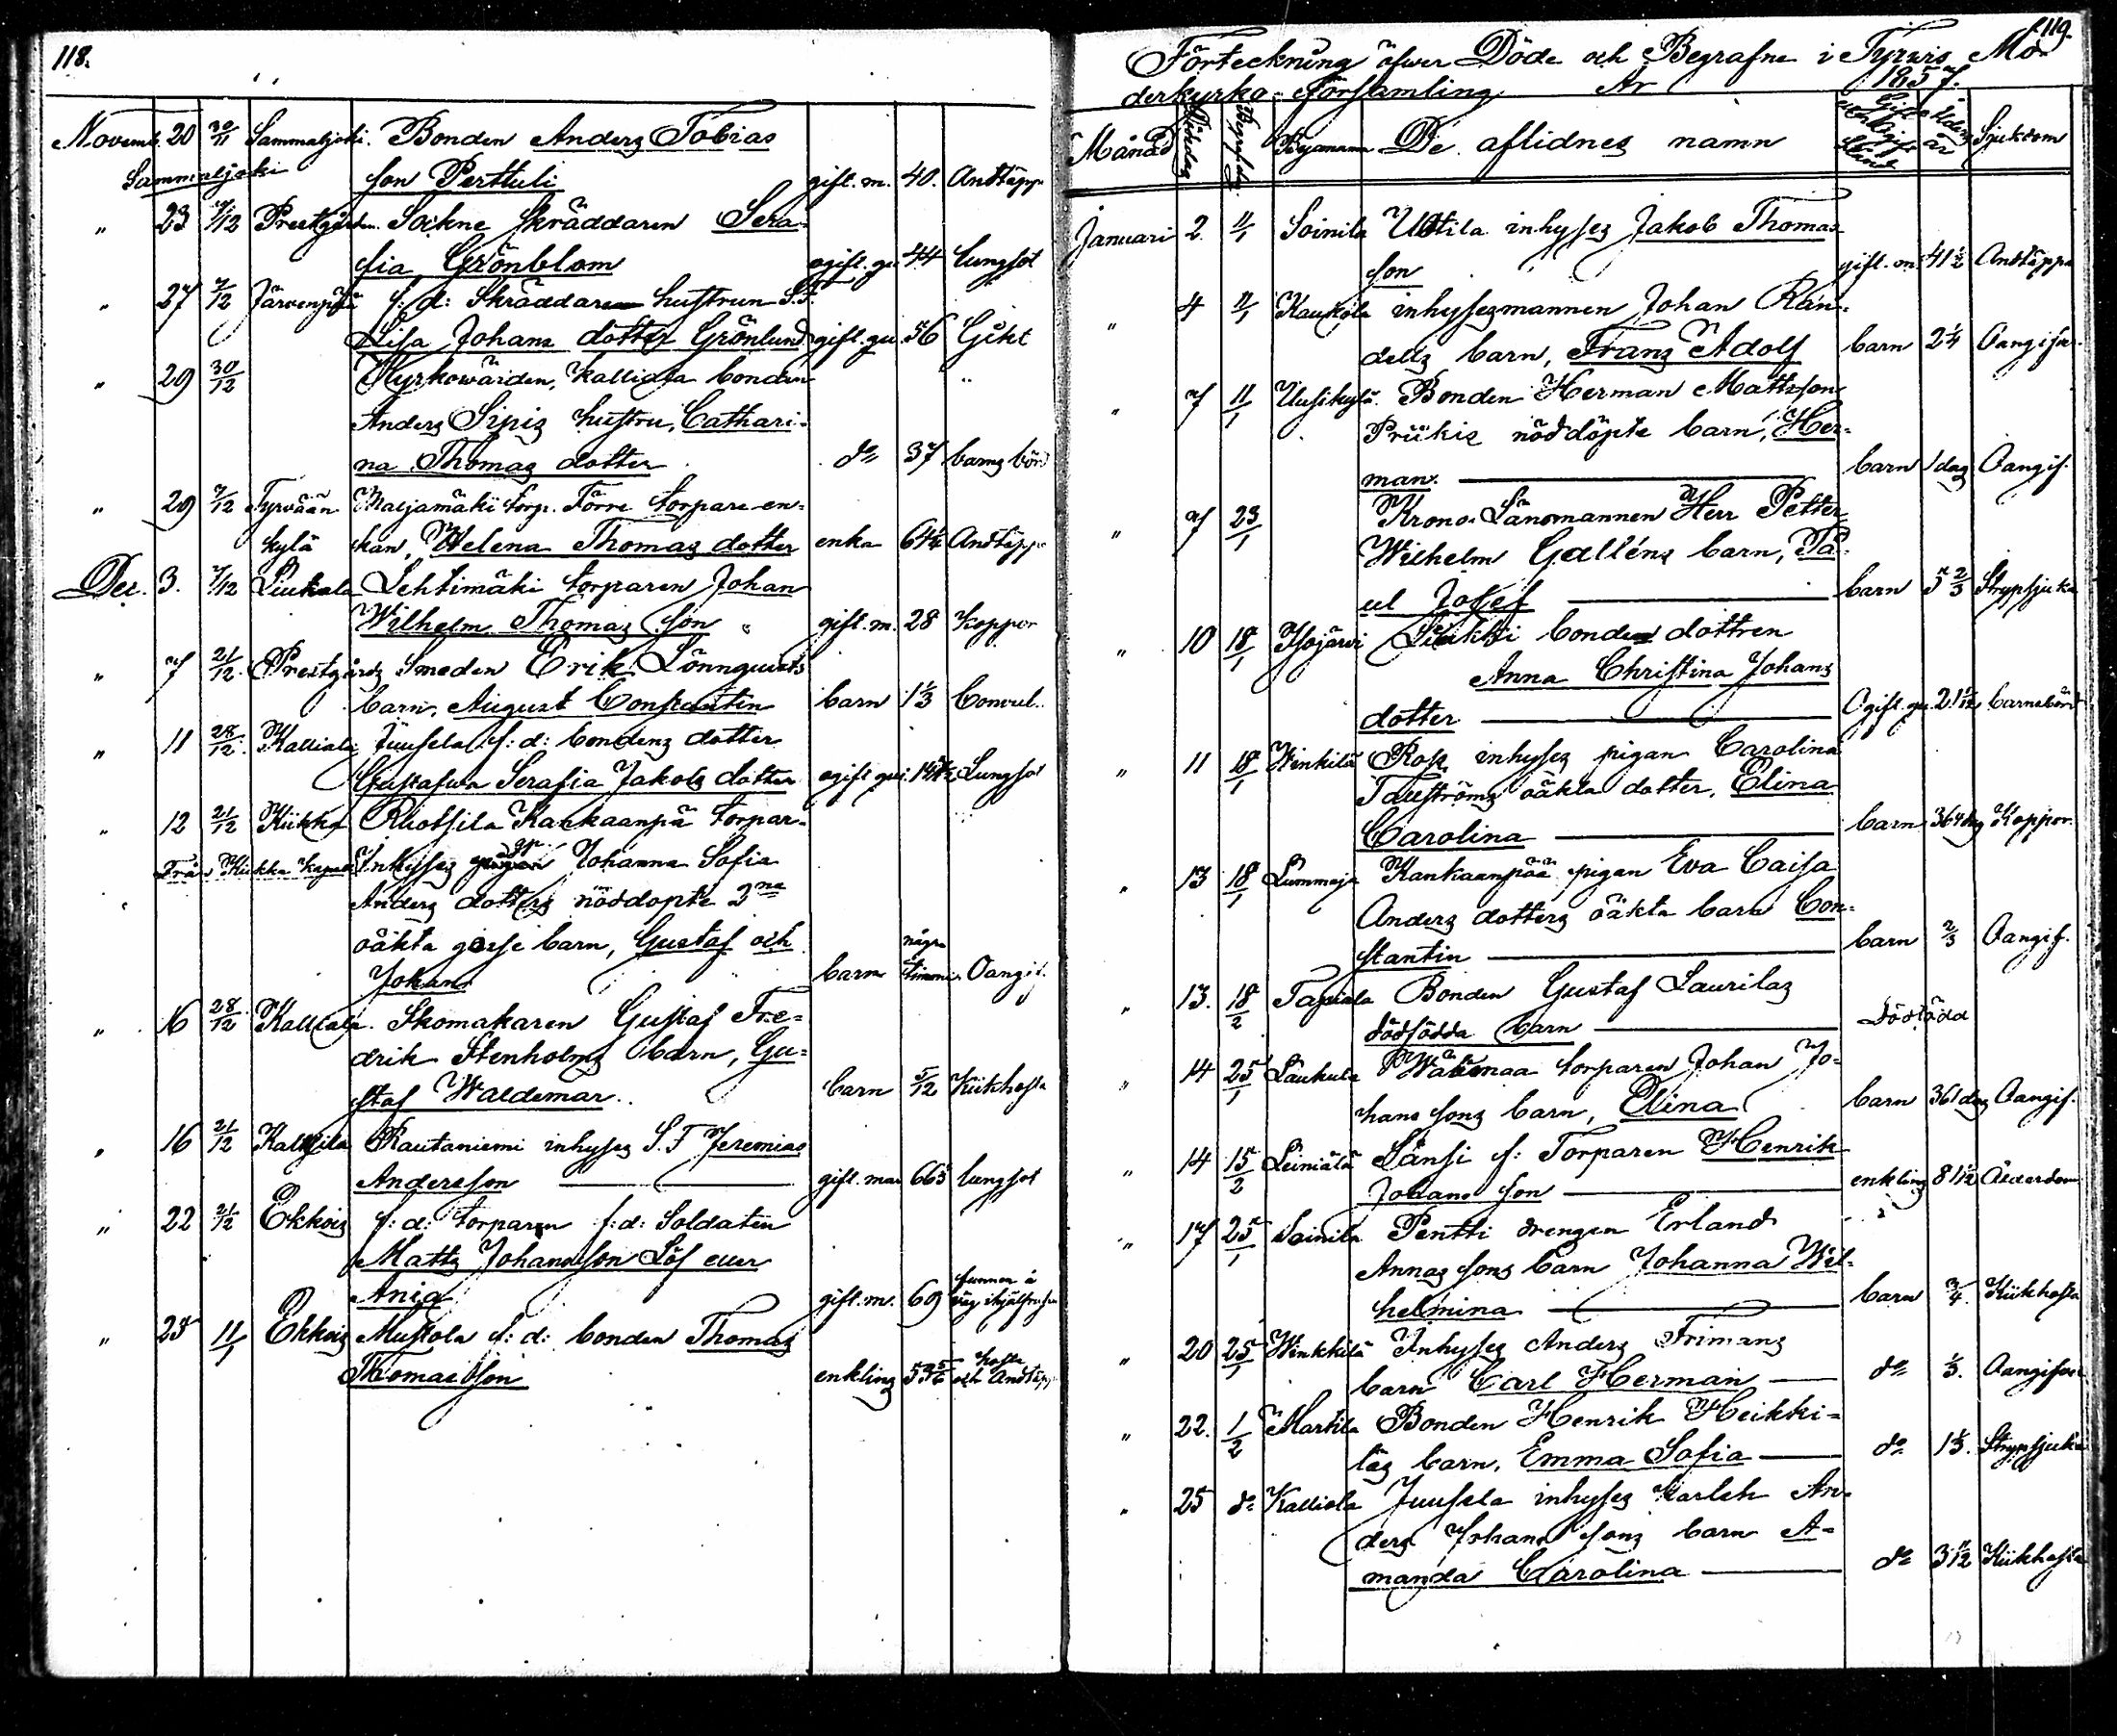 118.
Novemb. 20 30/11 Sammaljoki. Bonden Anders Tobias
Sammaljoki son Perttuli gift. m. 40. Andtäpp
" 23 7/12 Prestgården. Sockne skräddaren Sera-
fia Grönblom ogift. qu. 44 lungsot
" 27 7/12 Järvenpää f: d: Skräddare hustrun S.F.
Lisa Johans dotter Grönlund gift. qu. 56 Gikt
" 29 30/12 Kyrkowärden, Kalliala bonden
Anders Sipis hustru, Cathari-
na Thomas dotter do 37 barns börd
" 29 7/12 Tyrvään Maljamäki torp. Törre torpare en-
kylä kan, Helena Thomas dotter enka 64 1/4 Andtäpp
Dec. 3. 7/12 Liukala Lehtimäki torparen Johan
Wilhelm Thomas son gift. m. 28 Koppor
" 7 21/12 Prestgårds Smeden Erik Lönnquists
barn, August Constantin barn 1 1/3 Convul.
" 11 28/12 Kalliala Juusela f: d: bondens dotter
Gustafwa Serafia Jakobs dotter ogift qu. Lungsot
" 12 21/12 Kiikka Ruotsila Kankaanpä torpar-
Från Kiikka Kapell Inhyses Johanna Sofia
Anders dotters nöddopte 2ne
oäkta gosse barn, Gustaf och
Johan barn några timmar Oangif.
" 16 28/12 Kalliala. Skomakaren Gustaf Fre-
drik Stenholms barn, Gu-
staf Waldemar. barn 5/12 Kikhosta
" 16 21/12 Kaltsila Rautaniemi inhyses S.F Jeremias
Andersson gift. man 66 lungsot
" 22 Ekkois f: d: torparen f: d: Soldaten
Matts Johansson Löf eller
Ania gift. m. 69 funnen å väg ihjälfrusen
" 25 11/1 Ekkois Mustola f: d: bonden Thomas
Thomasson enkling 53 5/6 hosta och Andtäpp
119.
Förteckning öfwer Döde och Begrafne i Tyrwis Mo-
derkyrko-församling År 1857.
Månad Dödsdag Begrafn.dag Byanamn De aflidnes namn Gift eller Ogift Stånd Ålder år Sjukdom
Januari 2. 11/1 Soinila Uotila inhyses Jakob Thomas
son gift. m. 41 1/2 Andtäppa
" 4 11/1 Kaukola inhysesmannen Johan Ran-
dells barn, Frans Adolf barn 2 1/4 Oangifv.
" 7 11/1 Uusikylä. Bonden Herman Mattsson
Priikis nöddöpte barn, Her-
man. barn 1 dag Oangif.
" 7 23/1 Krono Länsmannen Herr Petter
Wilhelm Galléns barn, Pa-
ul Josef barn 5 2/3 Strypsjuka
" 10 18/1 Isojärvi Liukki bonde dottren
Anna Christina Johans
dotter Ogift. qu. 21 barnsbörd
" 11 18/1 Winkilä Rosk inhyses pigan Carolina
Tauströms oäkta dotter, Elina
Carolina barn 364 dag Koppor.
" 13 18/1 Lummaja Kankaanpää pigan Eva Caisa
Anders dotters oäkta barn Con-
stantin barn 2/3 Oangif.
" 13. 18/2 Tapiala Bonden Gustaf Laurilas
dödfödda barn dödfödd
" 14 25/1 Laukula Wälimaa torparen Johan Jo-
hans sons barn, Elina barn 361 dag Oangif.
" 14 15/2 Leiniälä Länsi f: Torparen Henrik
Johans son enkling 81 1/2 Ålderdom
" 17 25/1 Soinila Pentti drengen Erland
Annas sons barn Johanna Wil-
helmina barn 3/4. Kikhosta
" 20 25/1 Winkkilä Inhyses Anders Frimans
barn Carl Herman do 1/3. Oangifven
" 22. 1/2 Martila Bonden Henrik Heikki-
läs barn, Emma Sofia do 1 1/3. Strypsjuka
" 25 do Kalliala Juusela inhyses karlen An-
ders Johans sons barn A-
manda Carolina do 3 1/12 Kikhosta